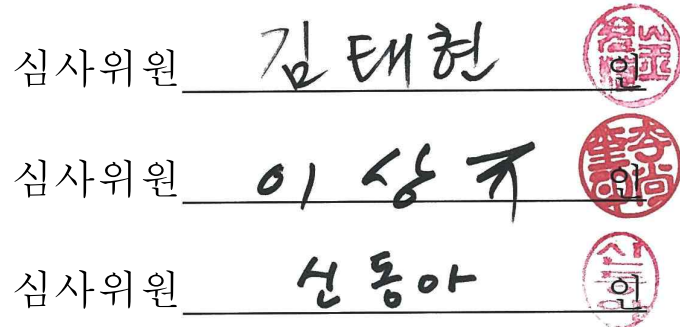 심사위원 김태현 인
심사위원 이상규 인
심사위원 신동아 인